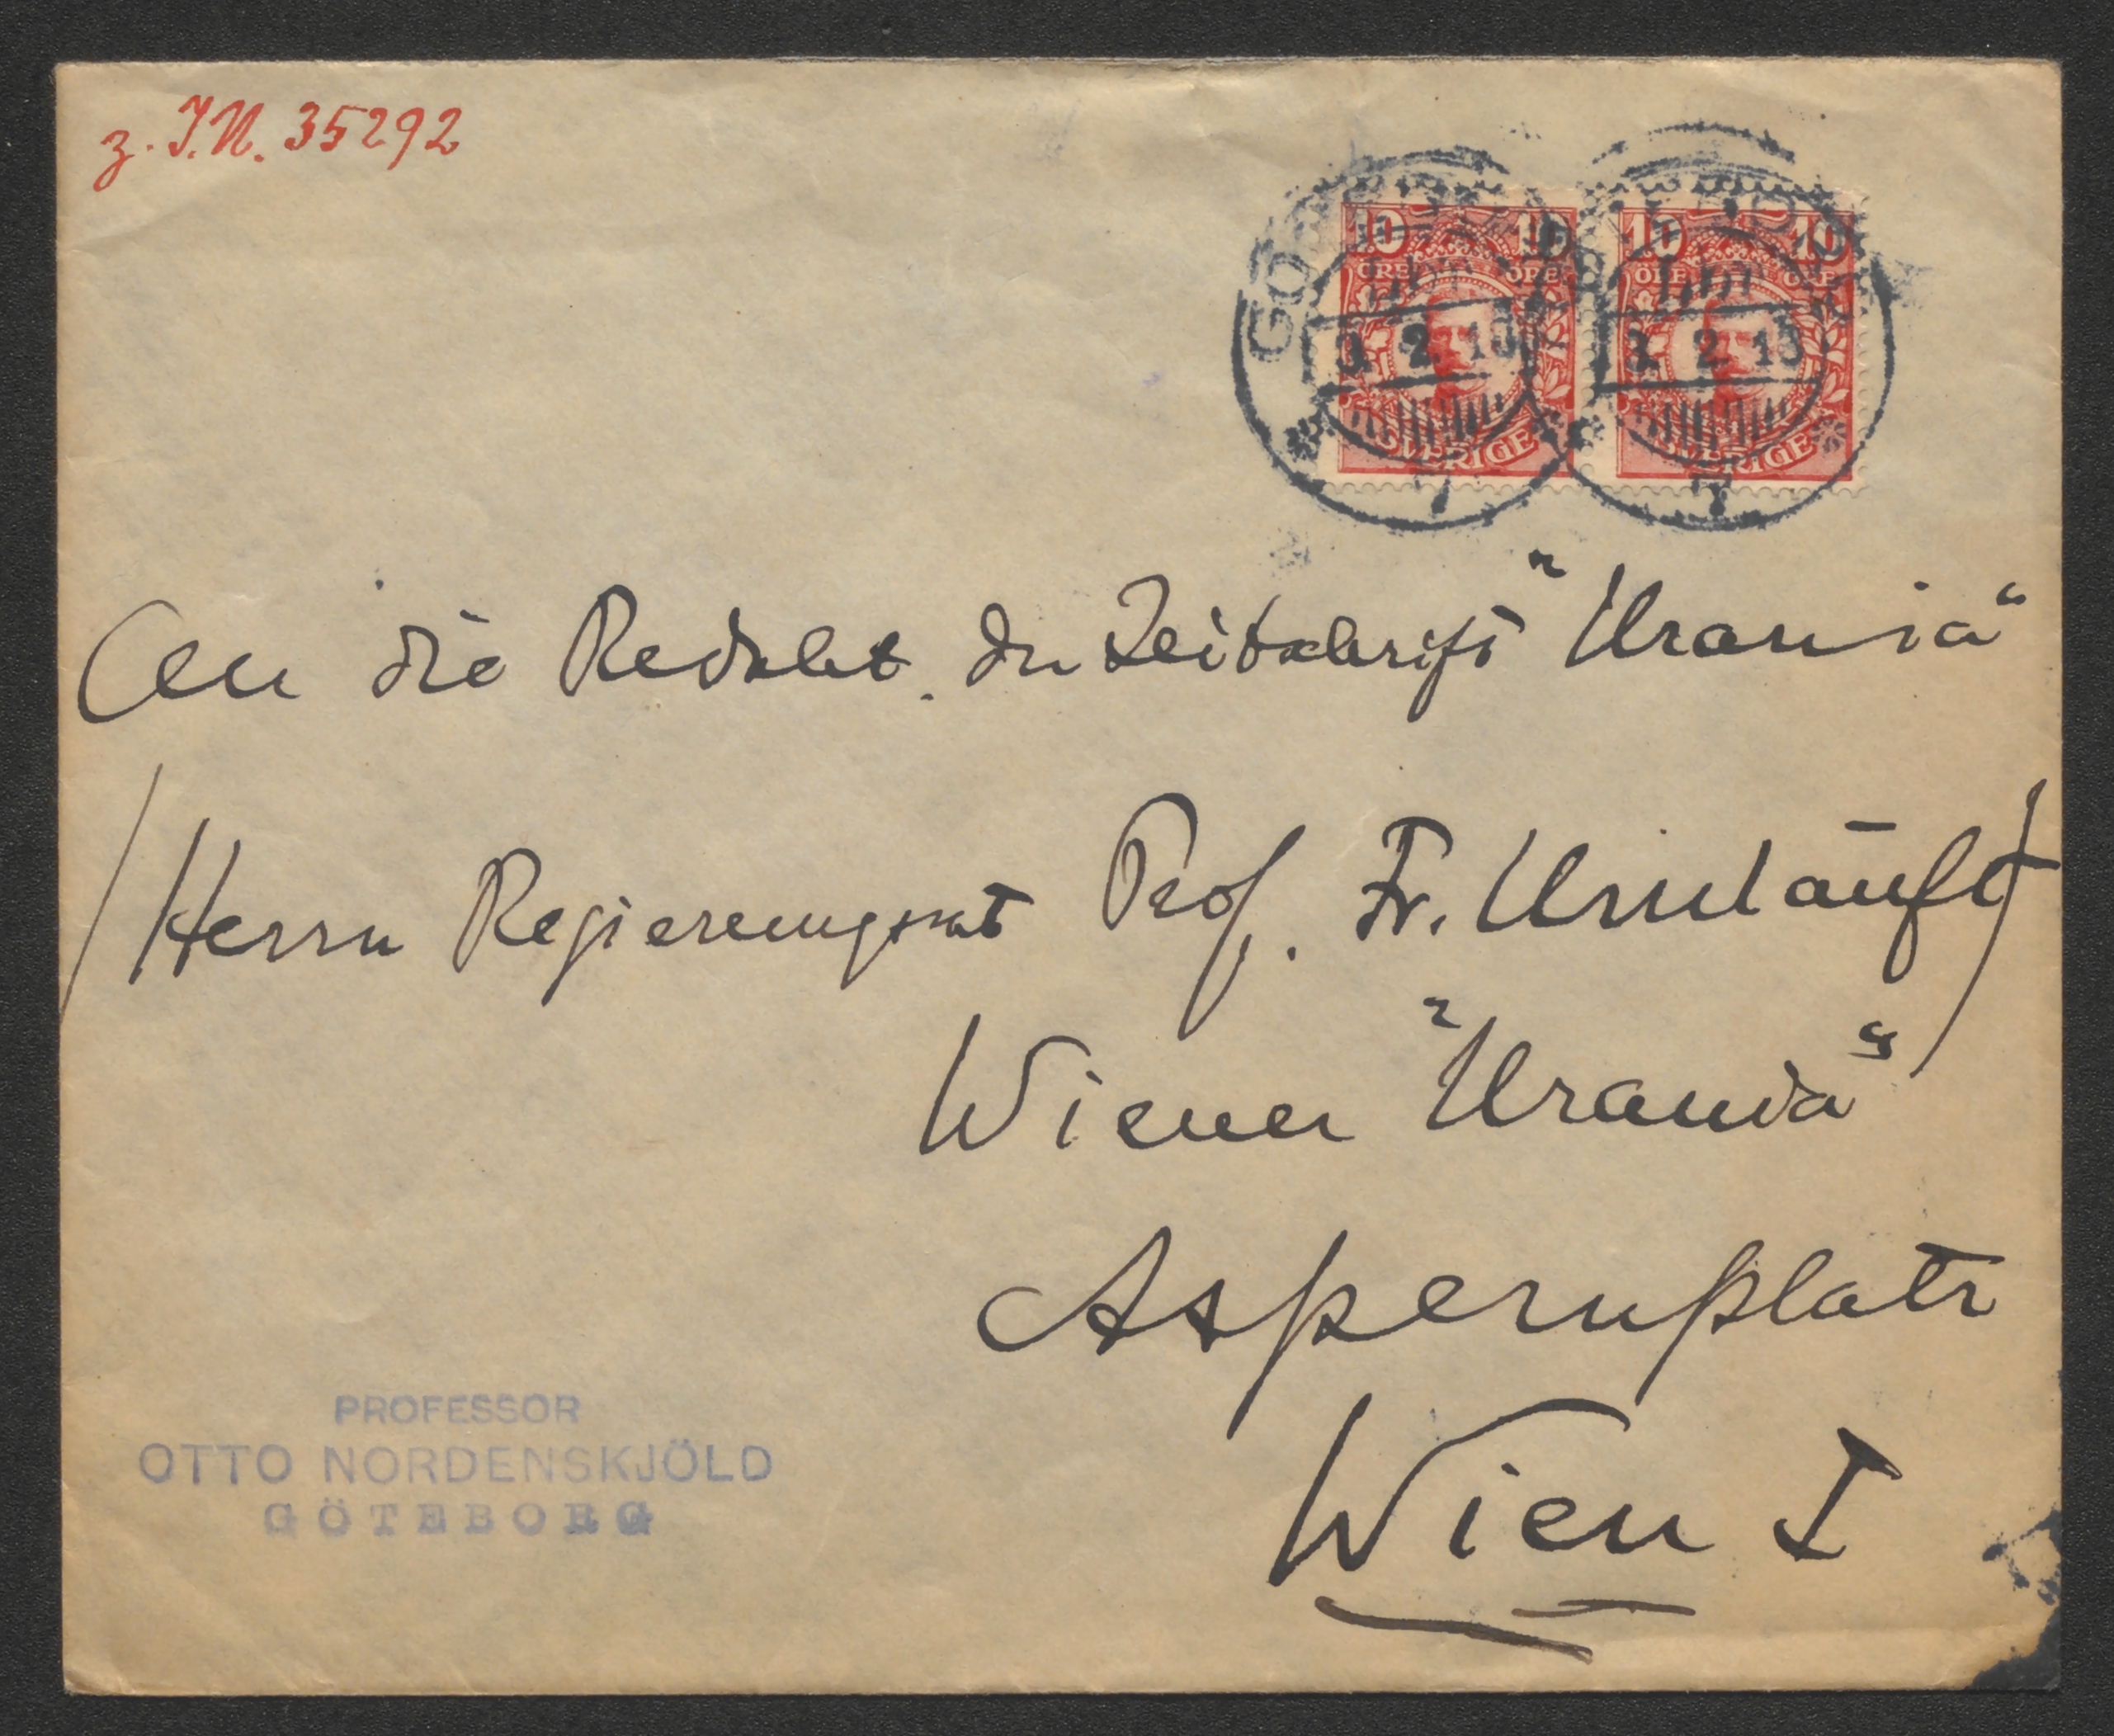 z. I.N. 35292
10 10 10 10
ÖRE ÖRE ÖRE ÖRE
3. 2. 13 3. 2. 13
SVERIGE SVERIGE
An die Redakt. der Zeitschrift "Urania"
/Herrn Regierungsrat Prof. Fr. Umlauft/
Wiener "Urania"
Aspernplatz
Wien I
PROFESSOR
OTTO NORDENSKJÖLD
GÖTEBORG